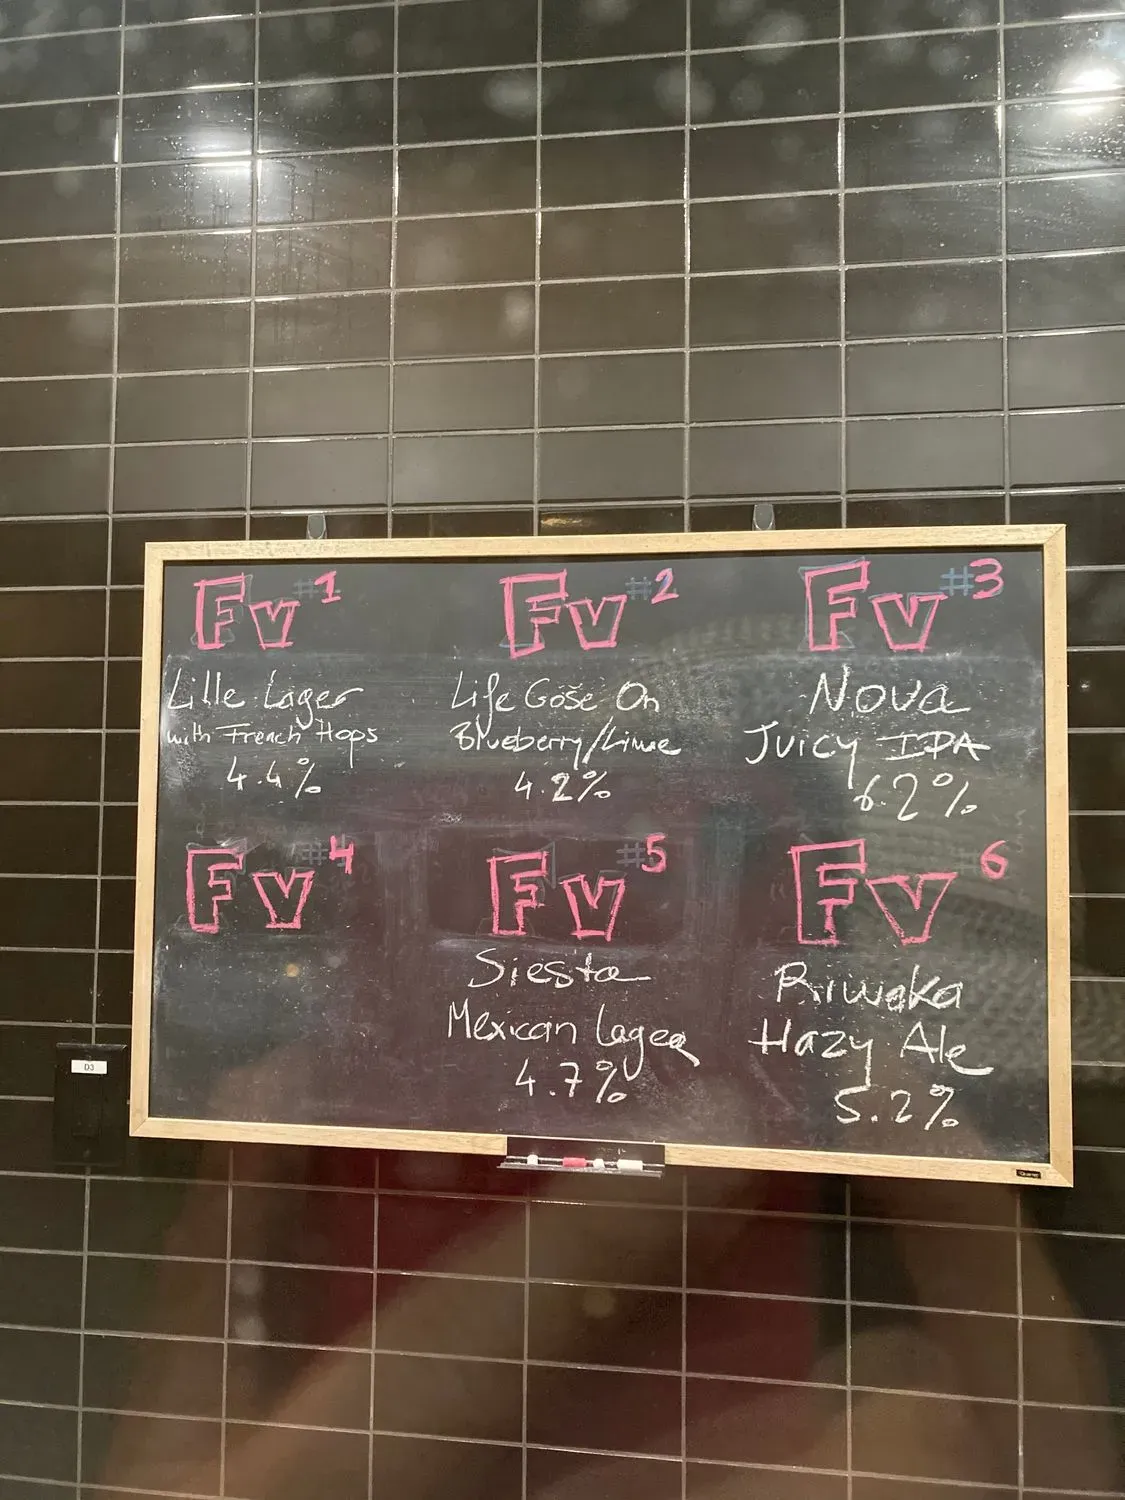 Fv #1
Lille Lager
with French Hops
4.4%
Fv #2
Life Gose On
Blueberry/Lime
4.2%
Fv #3
Nova
Juicy IPA
6.2%
Fv #4
Fv #5
Siesta
Mexican Lager
4.7%
Fv #6
Riwaka
Hazy Ale
5.2%
D3